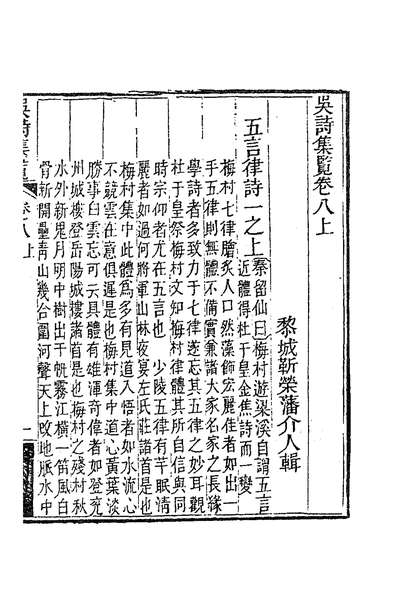 吳詩集覽卷八上
黎城靳榮藩介人輯
五言律詩一之上
秦留仙曰梅村遊梁溪自謂五言
近體得杜于皇金焦詩而一變
梅村七律膾炙人口然藻飾宏麗佳者如出一
手五律則無體不備實兼諸大家名家之長緣
學詩者多致力于七律遂忘其五律之妙耳觀
杜于皇祭梅村文知梅村律體其所自信與同
時宗仰者尤在五言也 少陵五律有芊眠清
麗者如過何將軍山林夜宴左氏莊諸首是也
梅村集中此體為多有見道入悟者如水流心
不競雲在意俱遲是也梅村集中道心黃葉淡
勝事白雲忘可云具體有雄渾奇偉者如登兗
州城樓登岳陽城樓諸首是也梅村之殘村秋
水外新鬼月明中樹出千帆霧江橫一笛風白
骨新開壘青山幾合圍河聲天上改地脈水中
吳詩集覽 卷八上 一